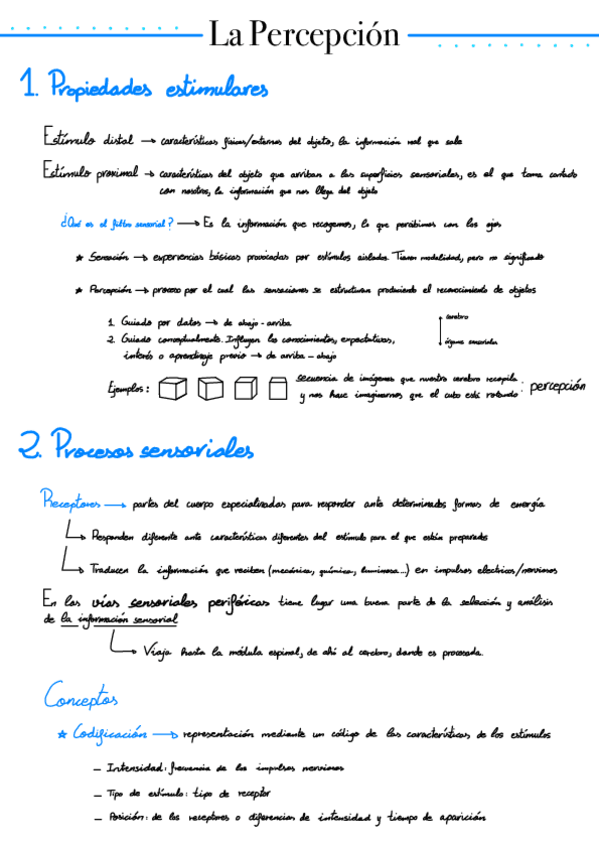 La Percepción
1. Propiedades estimulares
Estímulo distal → características físicas/externas del objeto, la información real que sale
Estímulo proximal → características del objeto que arriban a las superficies sensoriales, es el que toma contacto
con nosotros, la información que nos llega del objeto
¿Qué es el filtro sensorial? → Es la información que recogemos, lo que percibimos con los ojos
★ Sensación → experiencias básicas provocadas por estímulos aislados. Tienen modalidad, pero no significado
★ Percepción → proceso por el cual las sensaciones se estructuran produciendo el reconocimiento de objetos
1. Guiado por datos → de abajo - arriba
cerebro
2. Guiado conceptualmente. Influyen los conocimientos, expectativas,
interés o aprendizaje previo → de arriba - abajo
órganos sensoriales
Ejemplos:
secuencia de imágenes que nuestro cerebro recopila
y nos hace imaginarnos que el cubo está rotando : percepción
2. Procesos sensoriales
Receptores → partes del cuerpo especializadas para responder ante determinadas formas de energía
Responden diferente ante características diferentes del estímulo para el que están preparados
Traducen la información que reciben (mecánica, química, luminosa...) en impulsos electricos/nerviosos
En las vías sensoriales periféricas tiene lugar una buena parte de la selección y análisis
de la información sensorial
Viaja hasta la médula espinal, de ahí al cerebro, donde es procesada.
Conceptos
★ Codificación → representación mediante un código de las características de los estímulos
- Intensidad: frecuencia de los impulsos nerviosos
- Tipo de estímulo: tipo de receptor
- Posición: de los receptores o diferencias de intensidad y tiempo de aparición